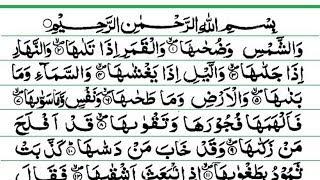 بِسْمِ اللهِ الرَّحْمٰنِ الرَّحِيْمِ
وَالشَّمْسِ وَضُحٰىهَا ۙ﴿۱﴾ وَالْقَمَرِ اِذَا تَلٰىهَا ۙ﴿۲﴾ وَالنَّهَارِ
اِذَا جَلّٰىهَا ۙ﴿۳﴾ وَالَّيْلِ اِذَا يَغْشٰىهَا ۙ﴿۴﴾ وَالسَّمَآءِ وَمَا
بَنٰىهَا ۙ﴿۵﴾ وَالْاَرْضِ وَمَا طَحٰىهَا ۙ﴿۶﴾ وَنَفْسٍ وَّمَا سَوّٰىهَا ۙ﴿۷﴾
فَاَلْهَمَهَا فُجُوْرَهَا وَتَقْوٰىهَا ۙ﴿۸﴾ قَدْ اَفْلَحَ
مَنْ زَكّٰىهَا ۙ﴿۹﴾ وَقَدْ خَابَ مَنْ دَسّٰىهَا ؕ﴿۱۰﴾ كَذَّبَتْ
ثَمُوْدُ بِطَغْوٰىهَا ۙ﴿۱۱﴾ اِذِ انْۢبَعَثَ اَشْقٰىهَا ۙ﴿۱۲﴾ فَقَالَ